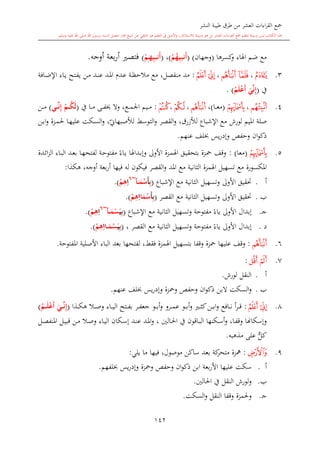 جمع القراءات العشر من طرق طيبة النشر
مع ضم الهاء وكسرها (وجهان) (أَنۢبِيهُم)، (أَنۢبِيهِم) فتصير أربعة أوجه.
٣. يَٰٓـَٔادَمُ، فَلَمَّآ أَنۢبَأَهُم، إِنِّيٓ أَعۡلَمُ: مد منفصل، مع ملاحظة عدم المد عند من يفتح ياء الإضافة في (إِنِّيَ أَعۡلَمُ).
٤. أَنۢبِئۡهُم، بِأَسۡمَآئِهِمۡ (معا)، أَنۢبَأَهُم، لَّكُمۡ، كُنتُمۡ: ميم الجمع، ولا يخفى ما في (لَّكُمۡ إِنِّيٓ) من صلة الميم لورش مع الإشباع للأزرق، والقصر والتوسط للأصبهاني، والسكت عليها لحمزة وابن ذكوان وحفص وإدريس بخلف عنهم.
٥. بِأَسۡمَآئِهِمۡ (معا): وقف حمزة بتحقيق الهمزة الأولى وإبدالها ياءً مفتوحة لفتحها بعد الباء الزائدة المكسورة مع تسهيل الهمزة الثانية مع المد والقصر فيكون له فيها أربعة أوجه، هكذا:
أ. تحقيق الأولى وتسهيل الثانية مع الإشباع
ب. تحقيق الأولى وتسهيل الثانية مع القصر
جـ. إبدال الأولى ياءً مفتوحة وتسهيل الثانية مع الإشباع
د. إبدال الأولى ياءً مفتوحة وتسهيل الثانية مع القصر،
٦. أَنۢبَأَهُم: وقف عليها حمزة وقفا بتسهيل الهمزة فقط، لفتحها بعد الباء الأصلية المفتوحة.
٧. أَلَمۡ أَقُل:
أ. النقل لورش.
ب. والسكت لابن ذكوان وحفص وحمزة وإدريس بخلف عنهم.
٨. إِنِّيٓ أَعۡلَمُ: قرأ نافع وابن كثير وأبو عمرو وأبو جعفر بفتح الياء وصلا هكذا (إِنِّيَ أَعۡلَمُ) وإسكانها وقفا، وأسكنها الباقون في الحالين، والمد عند إسكان الياء وصلا من قبيل المنفصل كلٌّ على مذهبه.
٩. وَٱلۡأَرۡضِ: همزة متحركة بعد ساكن موصول، فيها ما يلي:
أ. سكت عليها الأربعة ابن ذكوان وحفص وحمزة وإدريس بخلفهم.
ب. ولورش النقل في الحالين.
جـ. ولحمزة وقفا النقل والسكت.
١٤٢